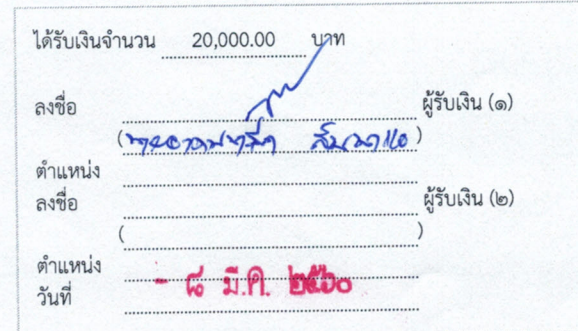 ได้รับเงินจำนวน 20,000.00 บาท
ลงชื่อ ผู้รับเงิน (๑)
( )
ตำแหน่ง
ลงชื่อ ผู้รับเงิน (๒)
( )
ตำแหน่ง
วันที่ - ๘ มี.ค. ๒๕๖๐